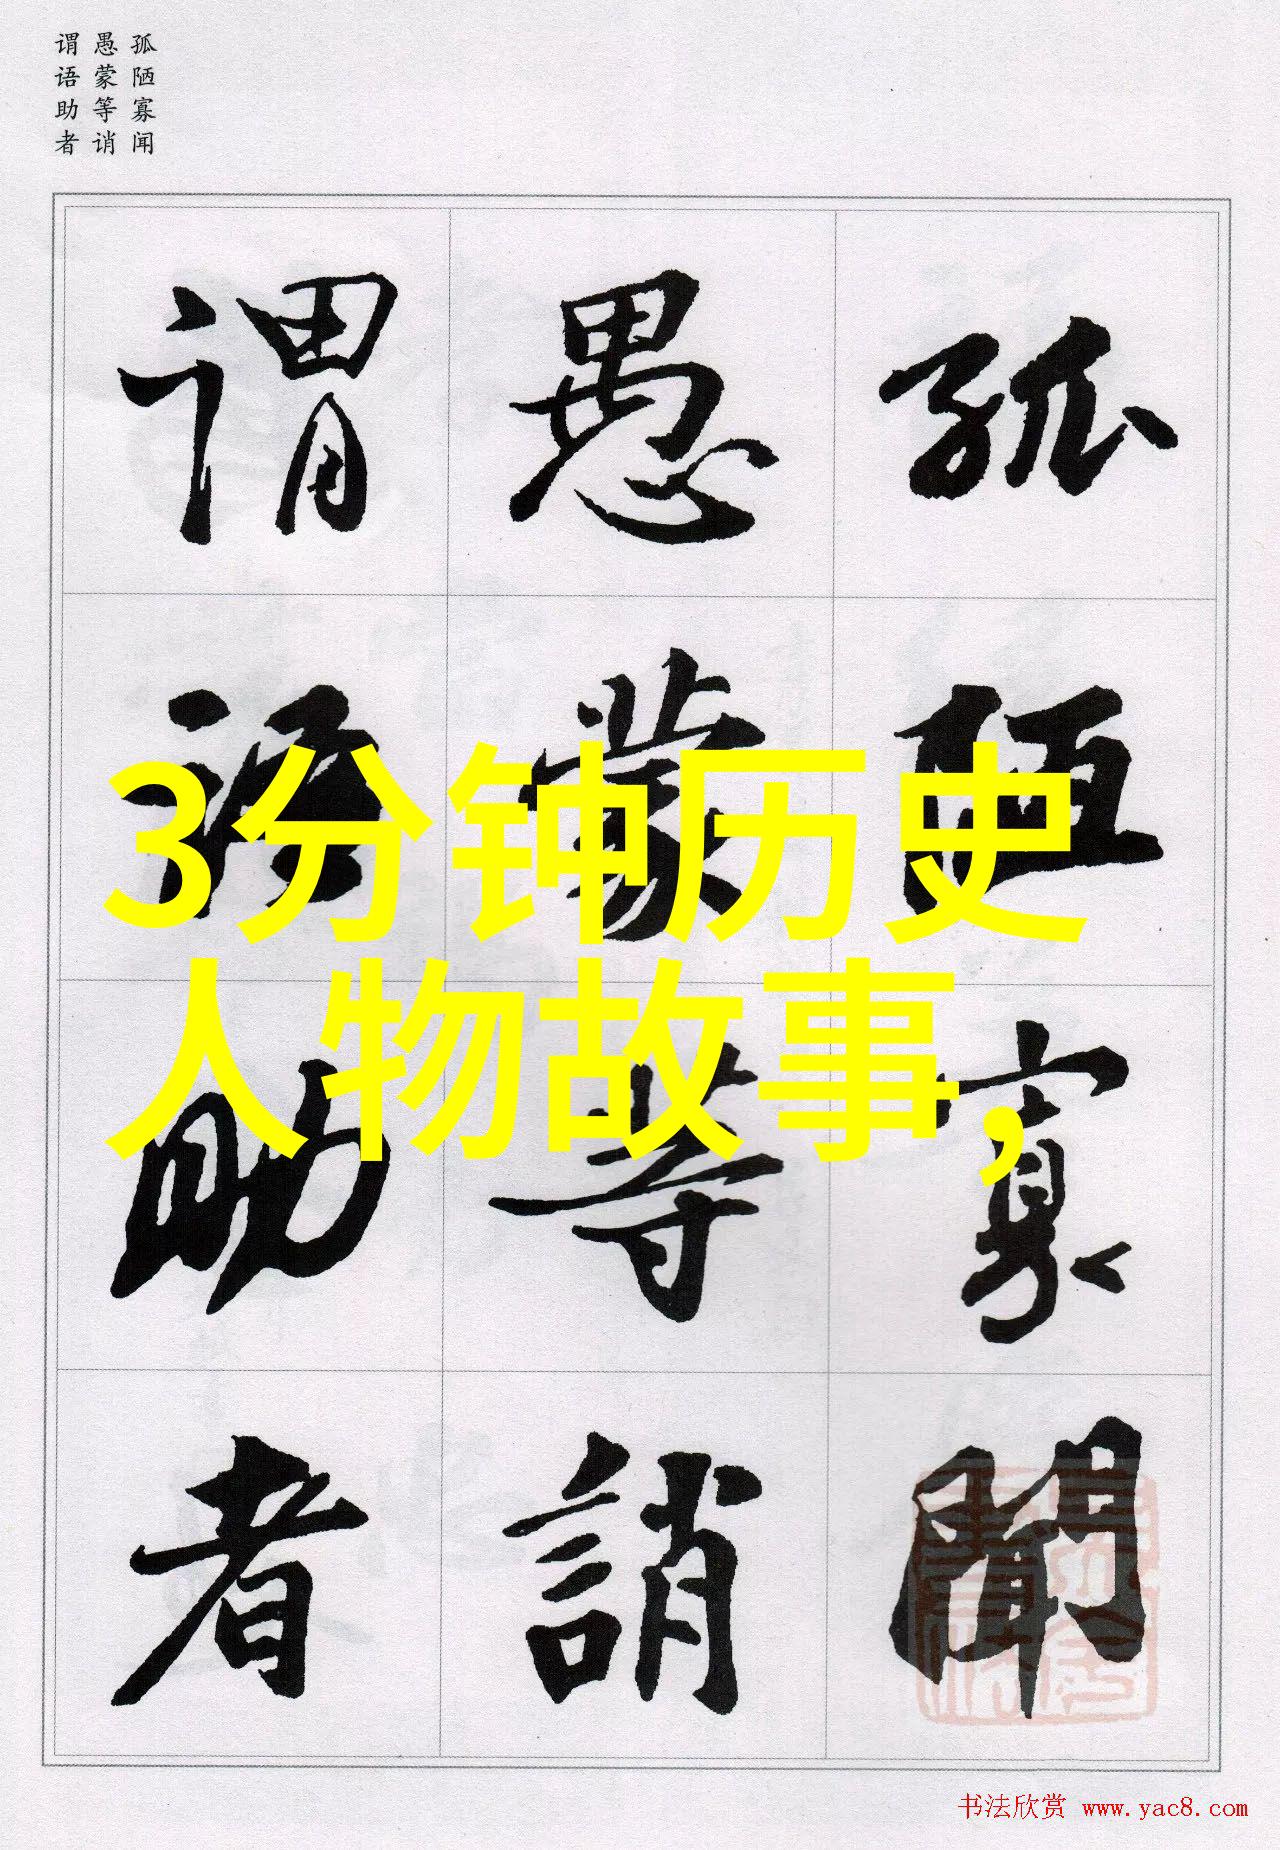 孤陋寡闻
愚蒙等诮
谓语助者
孤陋寡聞
愚蒙等誚
谓语助者
3分钟历史
人物故事,
书法欣赏 www.yac8.com